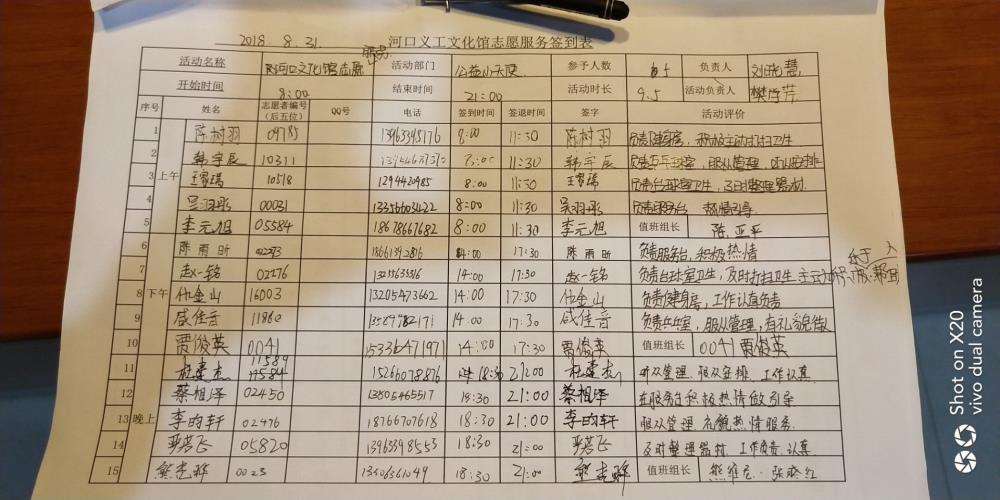 2018. 8. 31. 河口义工文化馆志愿服务签到表
服务
活动名称 河口文化馆志愿 活动部门 公益小天使 参予人数 15 负责人 刘晓慧
开始时间 8:00 结束时间 21:00 活动时长 9.5 活动负责人
序号 姓名 志愿者编号(后五位) QQ号 电话 签到时间 签退时间 签字 活动评价
1 陈树羽 09785 8:00 11:30 陈树羽 负责健身房，积极主动打扫卫生
2 韩宇辰 10311 8:00 11:30 韩宇辰 负责乒乓球室，服从管理，
3 上午 王家瑞 10518 8:00 11:30 王家瑞 负责台球室卫生，及时整理器材
4 吴羽彤 00031 13356603422 8:00 11:30 吴羽彤 负责服务台 热情引导
5 李元旭 05584 18678667682 8:00 11:30 李元旭 值班组长 陈亚平
6 陈雨昕 02273 18661392816 14:00 17:30 陈雨昕 负责服务台，积极热情
7 赵一铭 02276 14:00 17:30 赵一铭 负责台球室卫生，及时打扫卫生
8 下午 仇金山 16003 13205473662 14:00 17:30 仇金山 负责健身房，工作认真负责
9 咸佳音 11860 14:00 17:30 咸佳音 负责乒乓室，服从管理，有礼貌
10 贾俊英 0041 15336471971 14:00 17:30 贾俊英 值班组长 0041 贾俊英
11 杜建杰 11589 11584 15266078876 18:30 21:00 杜建杰 听从管理、服从安排、工作认真
12 蔡相泽 02450 13805465517 18:30 21:00 蔡相泽 在服务台积极热情做引导
13 晚上 李昀轩 02476 18766707618 18:30 21:00 李昀轩 服从管理、礼貌热情服务。
14 05820 13963398553 18:30 21:00 及时整理器材、工作负责、认真
15 熊志晔 13506361049 18:30 21:00 熊志晔 值班组长
Shot on X20
vivo dual camera